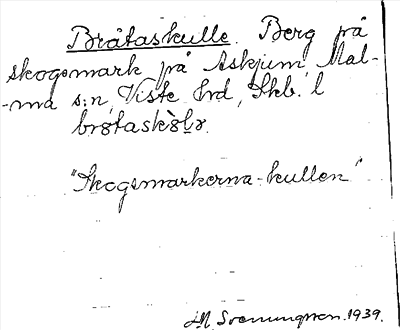 Bråtaskulle. Berg på
skogsmark på Askjum, Mal-
-ma s:n, Viste hrd, Skb. l
"Skogsmarkerna-kullen"
Svenungsson. 1939.